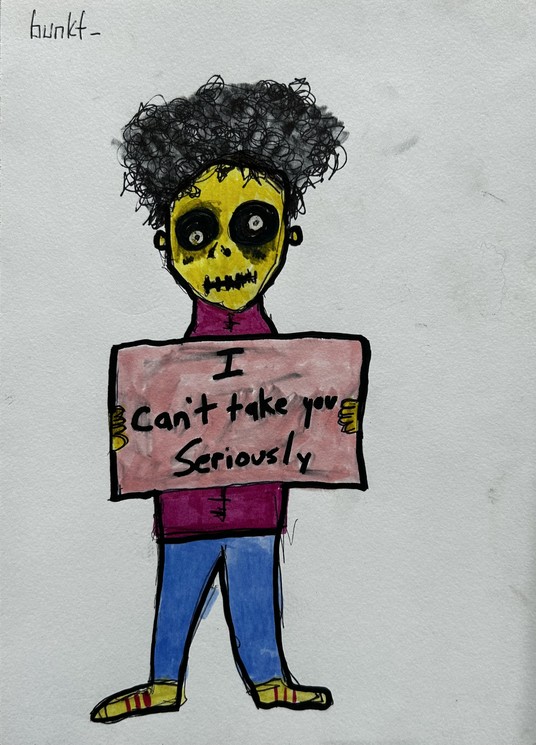 bunkt-
I
Can't take you
Seriously